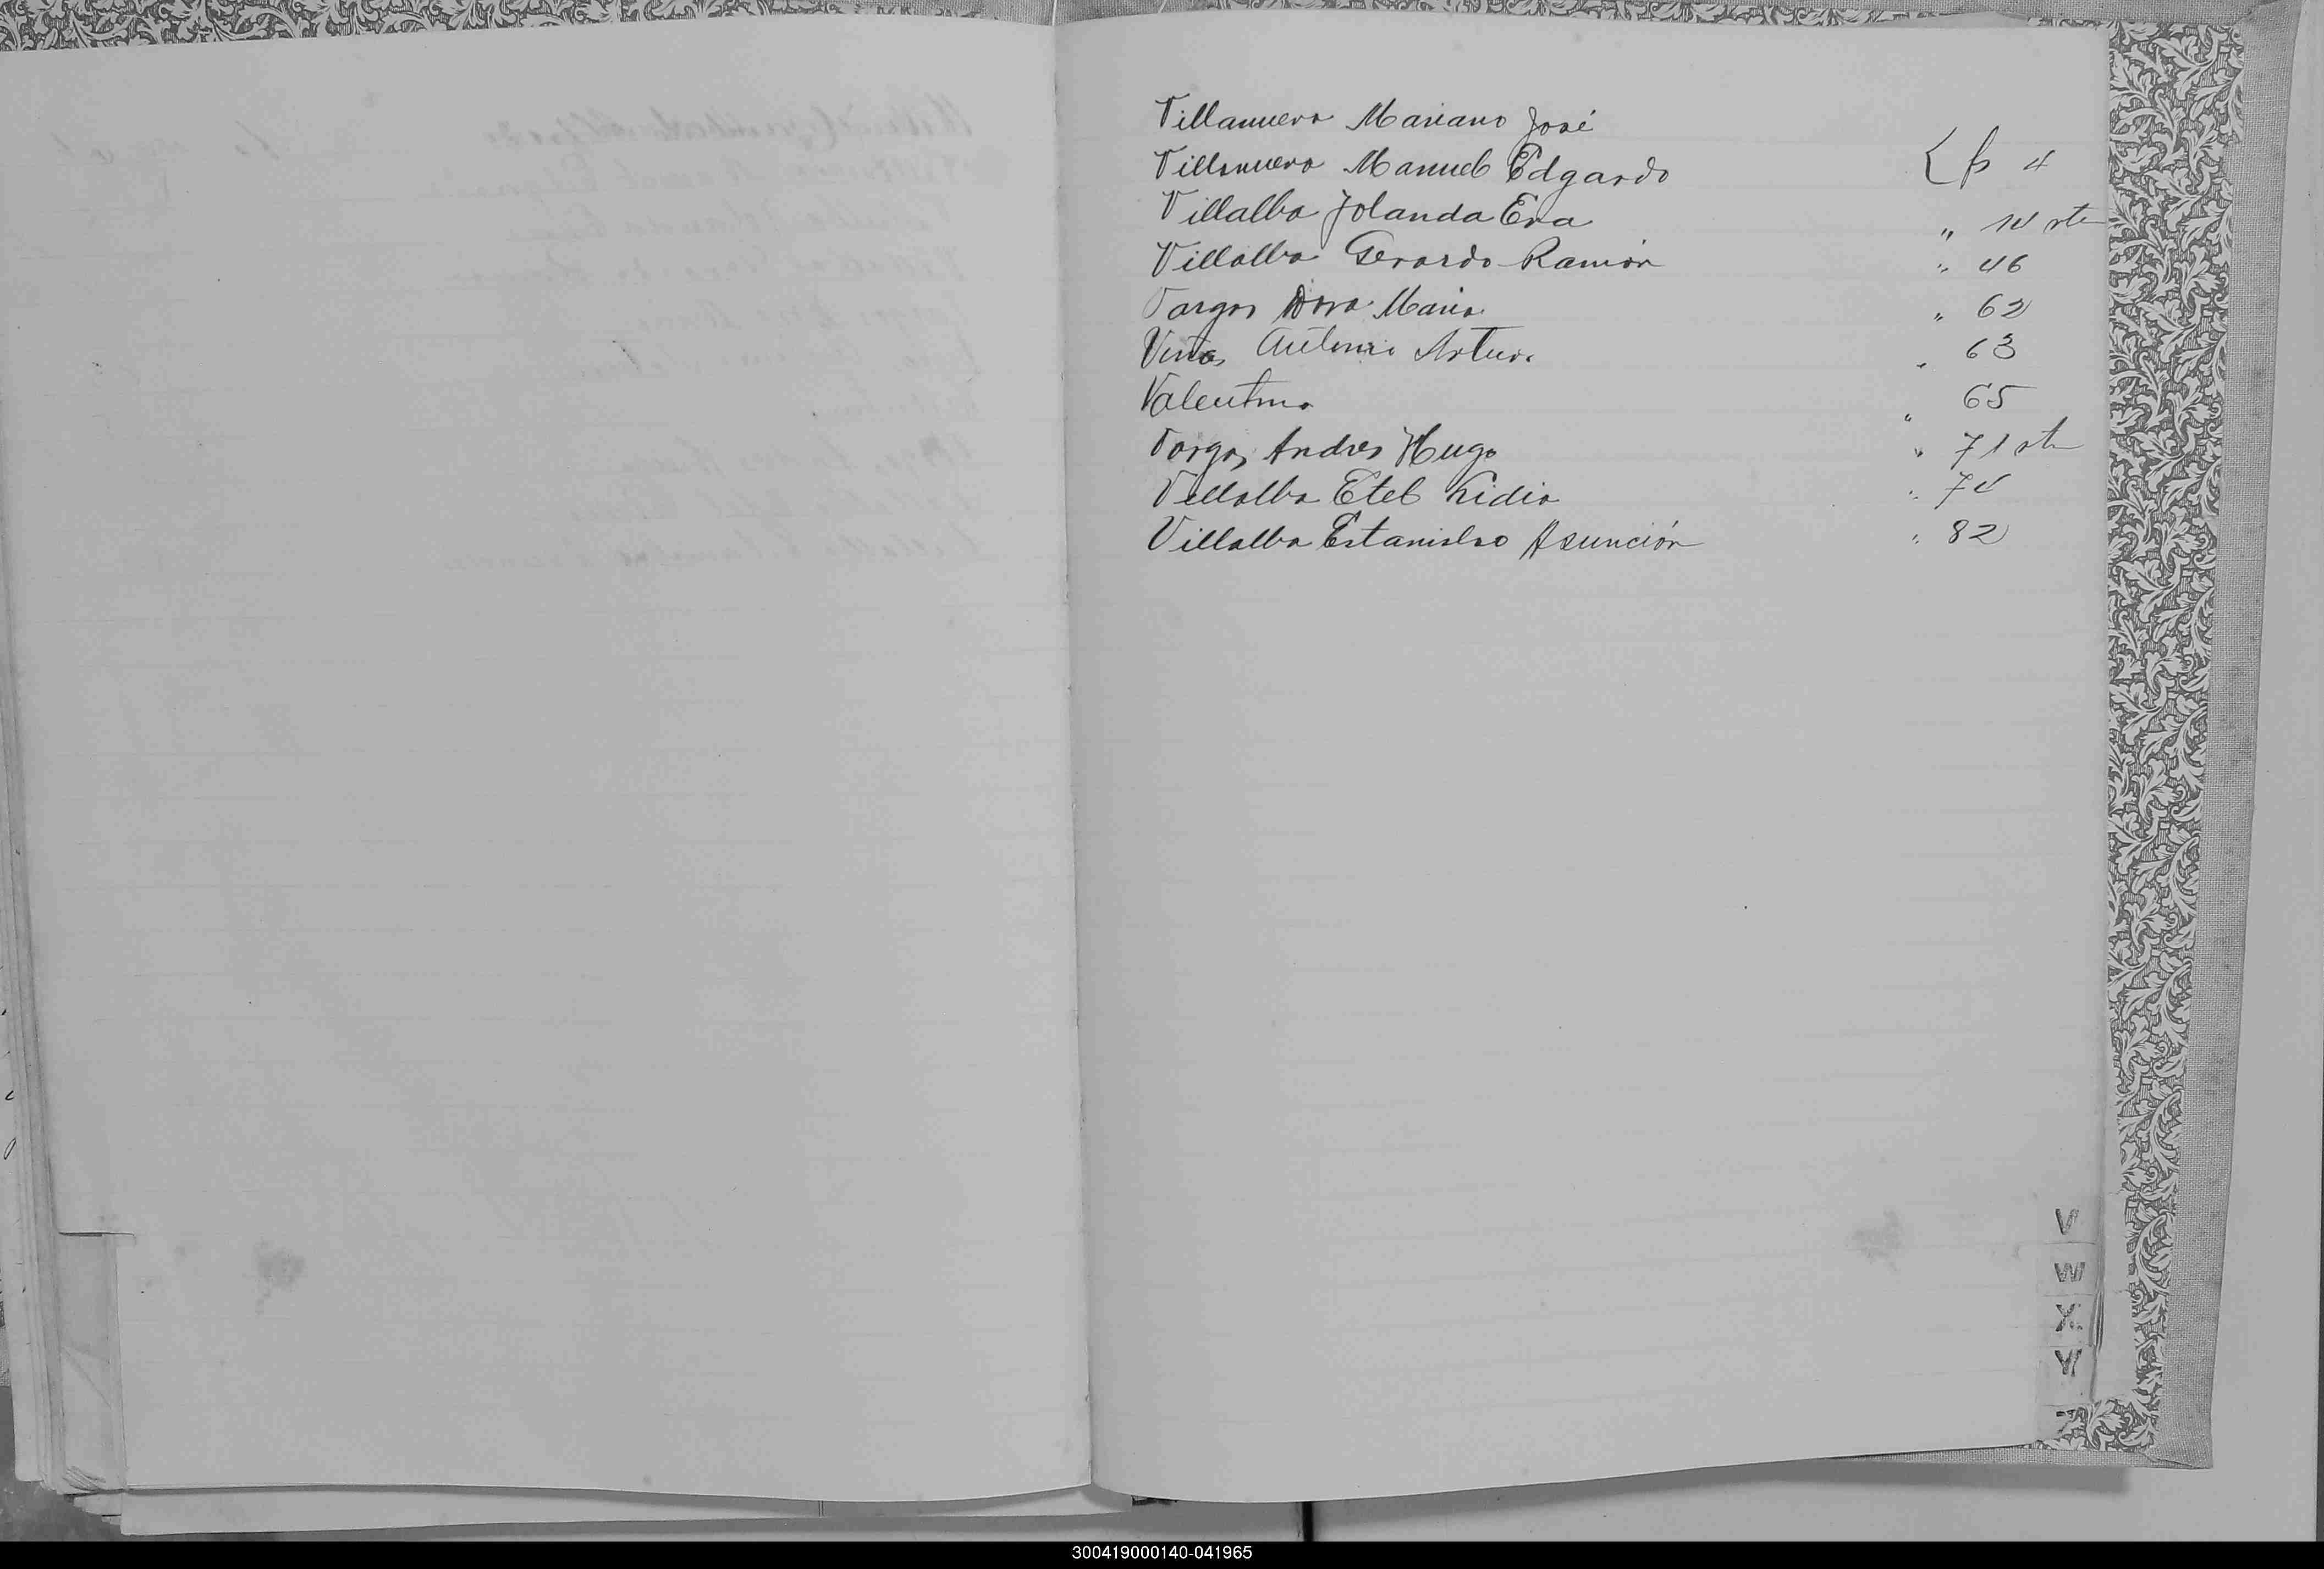 Villanueva Mariano José
Villanueva Manuel Edgardo { fs 4
Villalba Jolanda Eva " 14 vta
Villalba Gerardo Ramón " 46
Vargas Dora María " 62
Vinas Antonio Arturo " 63
Valentino " 65
Vargas Andres Hugo " 71 vta
Villalba Etel Lidia " 74
Villalba Estanislao Asunción " 82
V
W
X
Y
Z
300419000140-041965